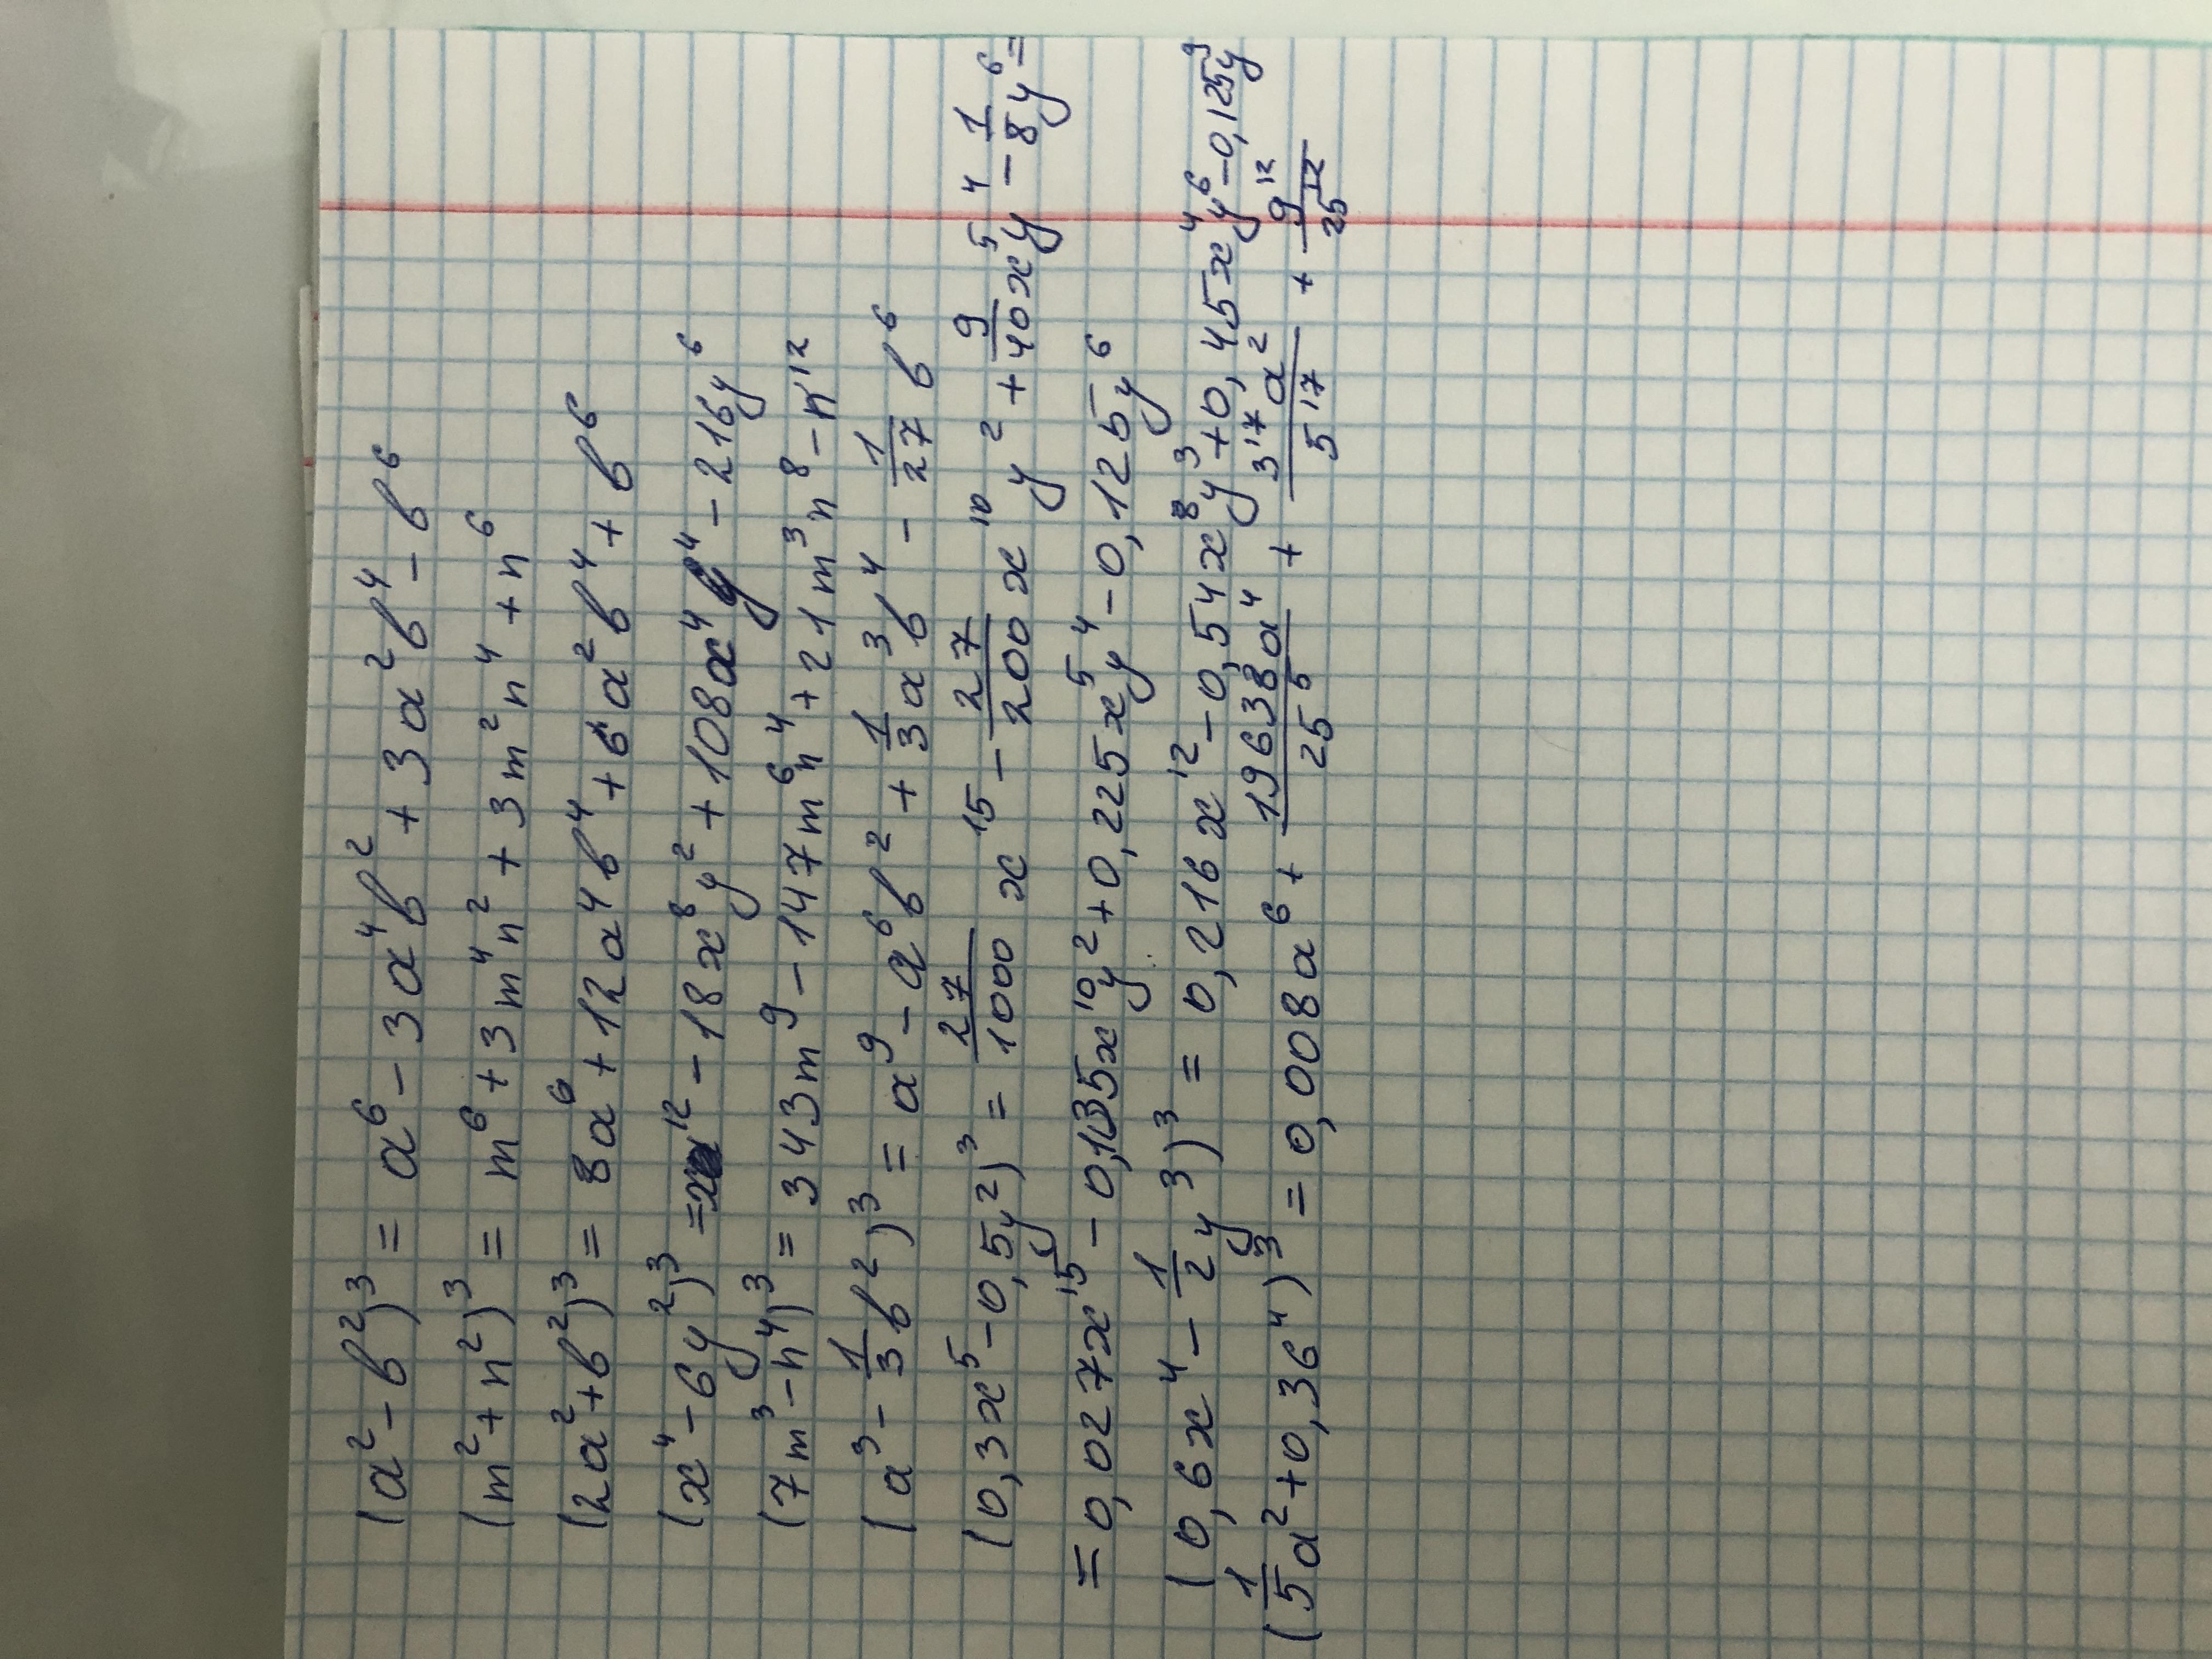 (a²-b²)³ = a⁶-3a⁴b²+3a²b⁴-b⁶
(m²+n²)³ = m⁶+3m⁴n²+3m²n⁴+n⁶
(2a²+b²)³ = 8a⁶+12a⁴b⁴+6a²b⁴+b⁶
(x⁴-6y²)³ = x¹²-18x⁸y²+108x⁴y⁴-216y⁶
(7m³-n⁴)³ = 343m⁹-147m⁶n⁴+21m³n⁸-n¹²
(a³-1/3b²)³ = a⁹-a⁶b²+1/3a³b⁴-1/27b⁶
(0,3x⁵-0,5y²)³ = 27/1000x¹⁵-27/200x¹⁰y²+9/40x⁵y⁴-1/8y⁶=
=0,027x¹⁵-0,135x¹⁰y²+0,225x⁵y⁴-0,125y⁶
(0,6x⁴-1/2y³)³ = 0,216x¹²-0,54x⁸y³+0,45x⁴y⁶-0,125y⁹
(1/5a²+0,36⁴)³ = 0,008a⁶+19638a⁴/25⁵+3¹⁷a²/5¹⁷+9¹²/25¹²